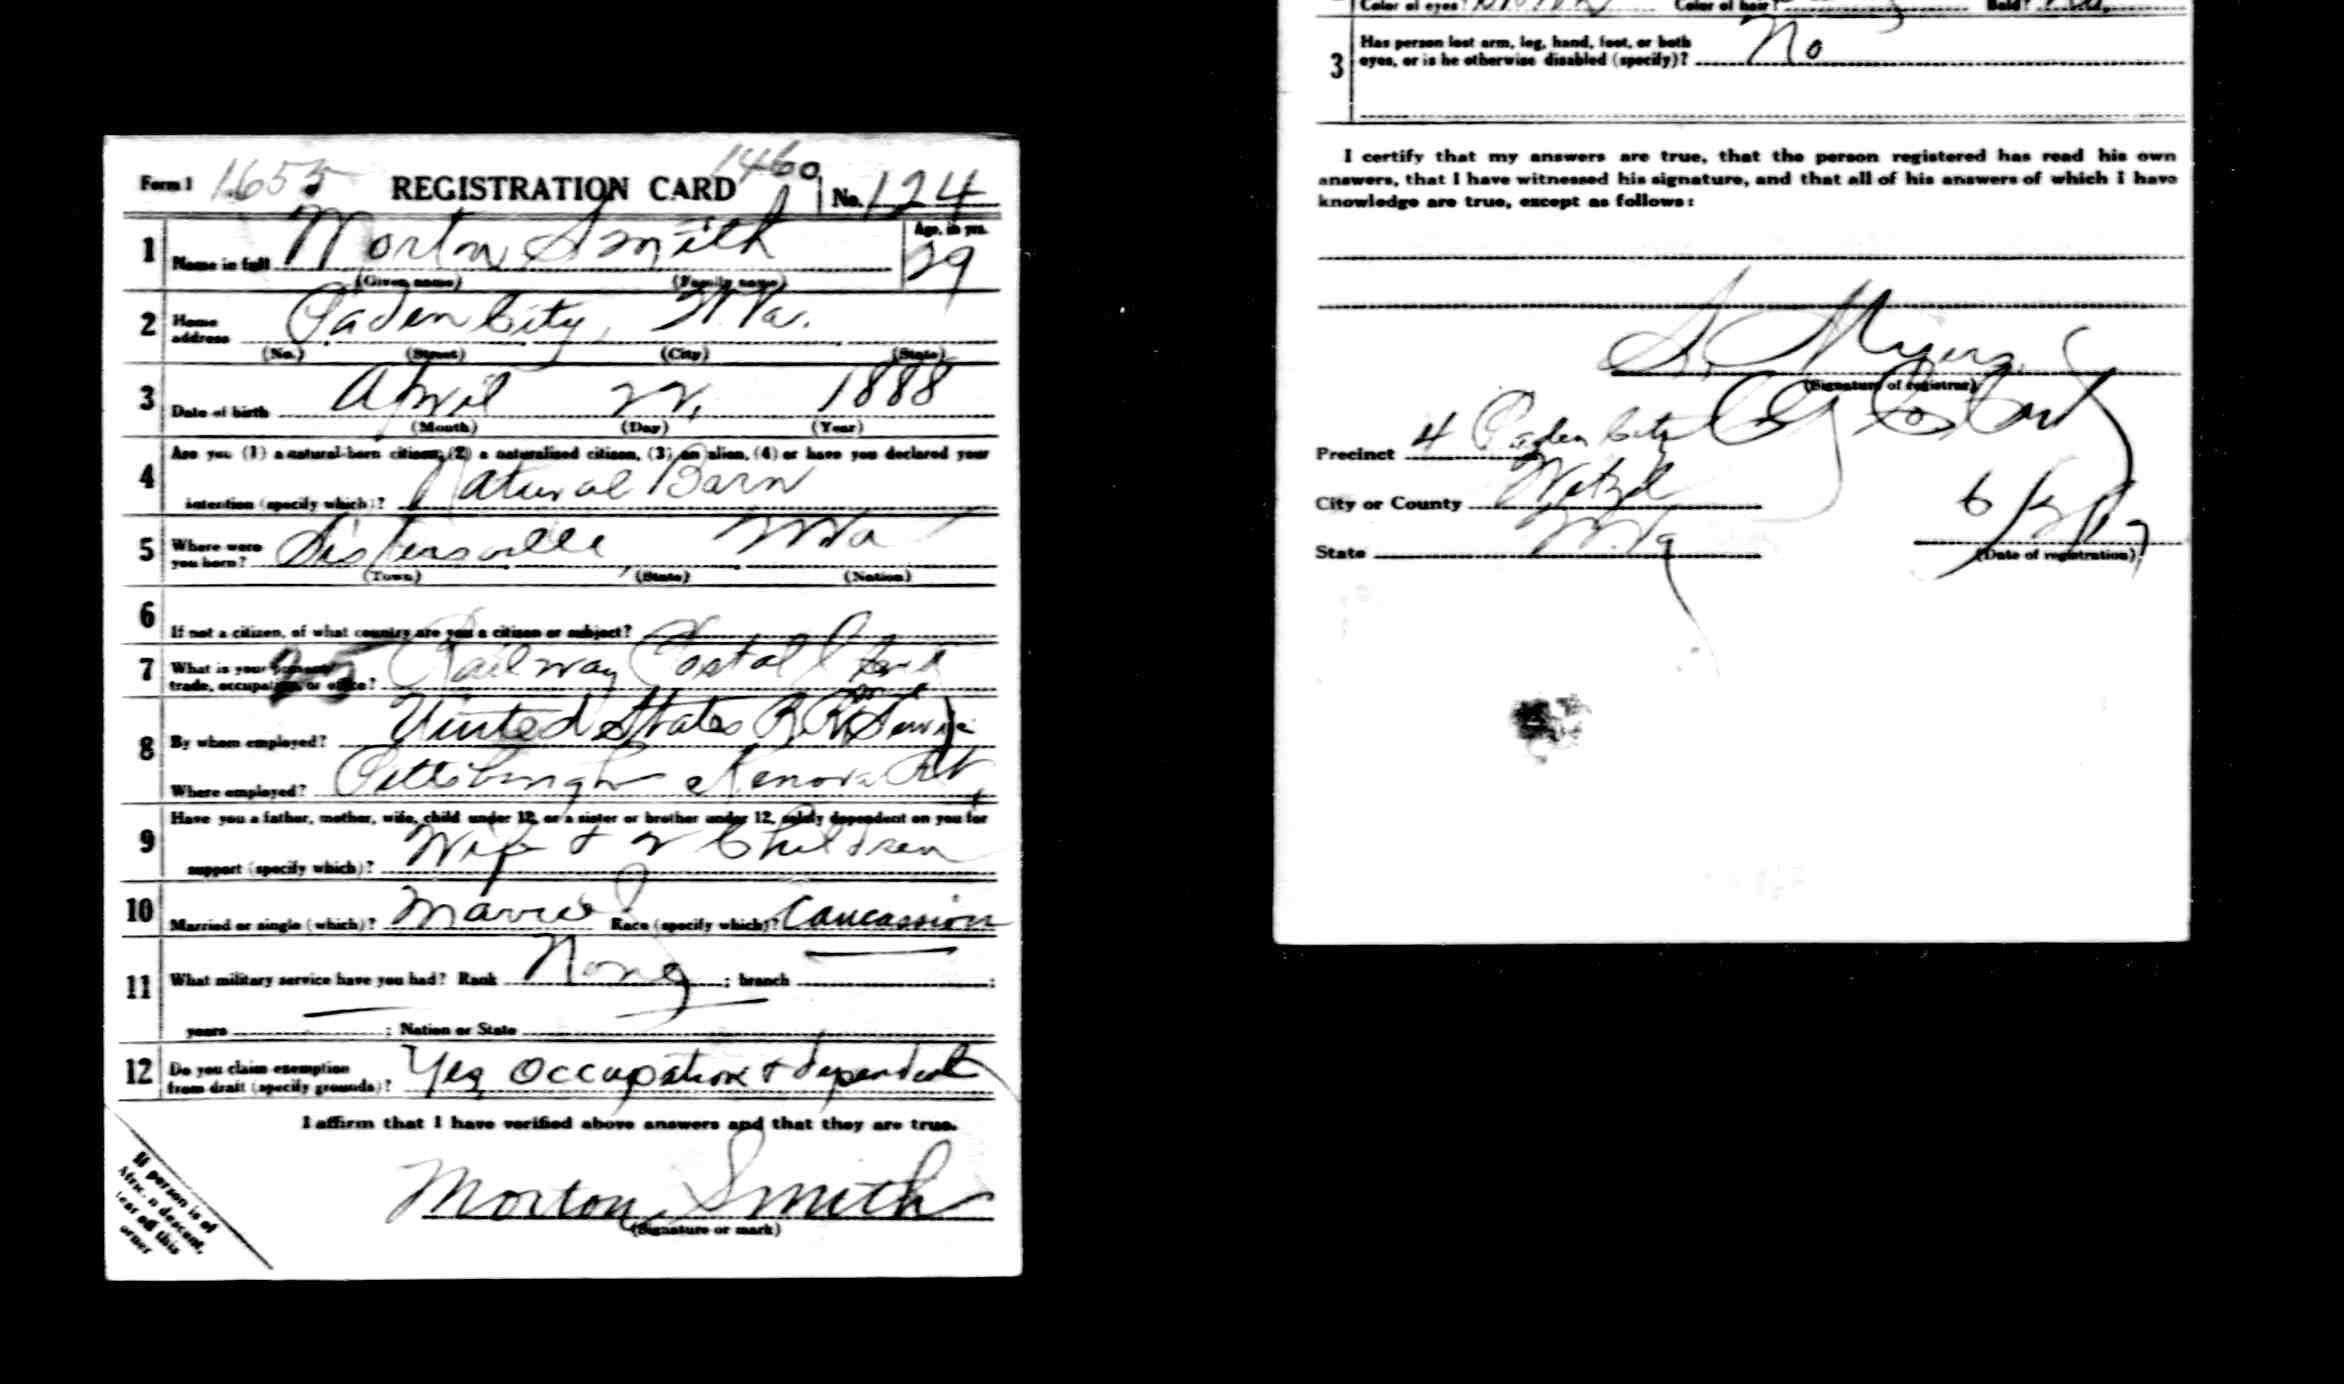 Form 1 1655 REGISTRATION CARD 1460 No. 124
1 Name in full Morton Smith Age, in yrs. 29
(Given name) (Family name)
2 Home address Paden City, W. Va.
(No.) (Street) (City) (State)
3 Date of birth April 22, 1888
(Month) (Day) (Year)
4 Are you (1) a natural-born citizen, (2) a naturalized citizen, (3) an alien, (4) or have you declared your
intention (specify which)? Natural Born
5 Where were you born? Sistersville, W Va
(Town) (State) (Nation)
6 If not a citizen, of what country are you a citizen or subject?
7 What is your present trade, occupation, or office? 25 Railway Postal Clerk
8 By whom employed? United States R R Mail Service
Where employed? Pittsburgh Kenova
9 Have you a father, mother, wife, child under 12, or a sister or brother under 12, solely dependent on you for
support (specify which)? Wife + 2 Children
10 Married or single (which)? Married Race (specify which)? Caucassion
11 What military service have you had? Rank None ; branch ;
years ; Nation or State
12 Do you claim exemption from draft (specify grounds)? Yes Occupation + dependent
I affirm that I have verified above answers and that they are true.
Morton Smith
(Signature or mark)
If person is of
African descent,
tear off this
corner
Color of eyes? Brown Color of hair? Bald? No
3 Has person lost arm, leg, hand, foot, or both
eyes, or is he otherwise disabled (specify)? No
I certify that my answers are true, that the person registered has read his own
answers, that I have witnessed his signature, and that all of his answers of which I have
knowledge are true, except as follows:
S. Myers
(Signature of registrar)
Precinct 4 Paden City
City or County Wetzel
State W. Va 6/5/17
(Date of registration)